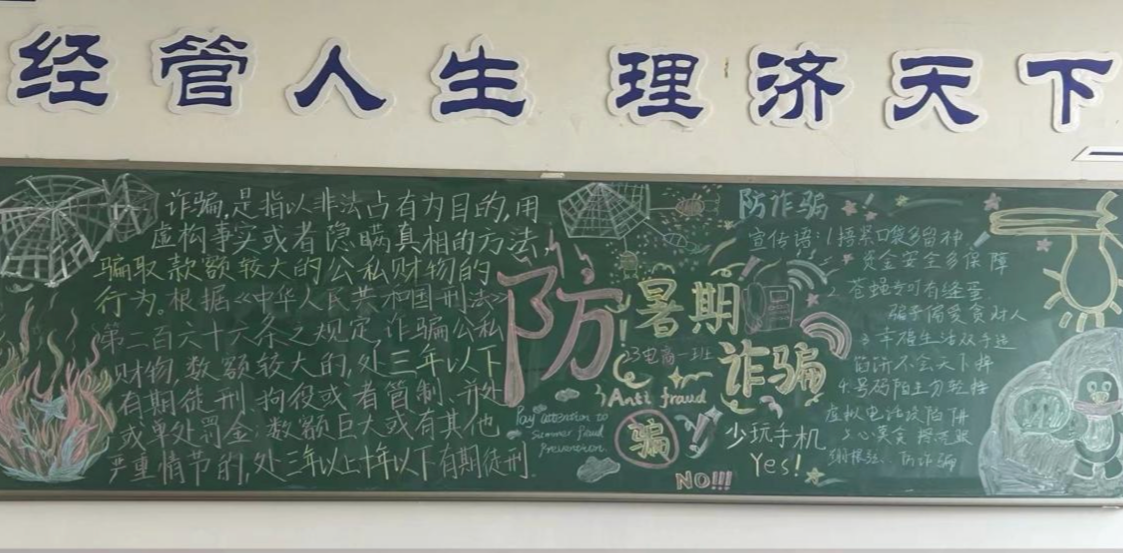 经管人生 理济天下
诈骗,是指以非法占有为目的,用
虚构事实或者隐瞒真相的方法,
骗取款额较大的公私财物的
行为。根据《中华人民共和国刑法》
第二百六十六条之规定,诈骗公私
财物,数额较大的,处三年以下
有期徒刑、拘役或者管制,并处
或单处罚金;数额巨大或有其他
严重情节的,处三年以上十年以下有期徒刑.
防
暑期
诈骗
23电商一班
Anti fraud
Pay attention to
Summer fraud
prevention.
骗
NO!!!
少玩手机
Yes!
防诈骗
宣传语:1.捂紧口袋多留神
资金安全多保障
2.苍蝇专叮有缝蛋
骗子偏爱贪财人
3.幸福生活双手造
馅饼不会天上掉
4.号码陌生勿轻
虚拟电话设陷阱
5.心莫贪
防诈骗